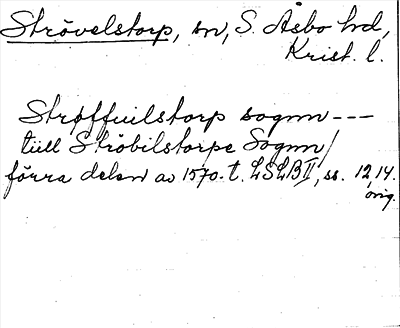 Strövelstorp, sn, S. Åsbo hd,
Krist. l.
Strøffuilstorp sognn ---
till Ströbilstorpe Sognn/
förra delen av 1570-t. LSLB II, ss. 12, 14.
orig.